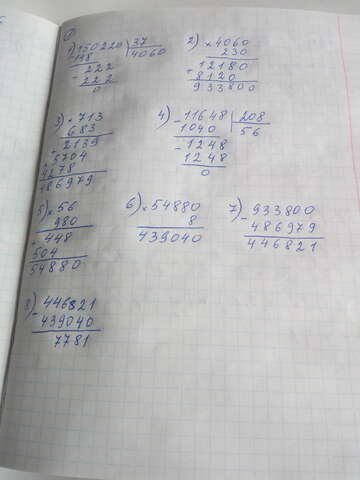 1) 150220 37
- 148 4060
- 222
222
0
2) × 4060
230
+ 12180
8120
933800
3) × 713
683
+ 2139
+ 5704
4278
486979
4) - 11648 208
1040 56
- 1248
1248
0
5) × 56
980
+ 448
504
54880
6) × 54880
8
439040
7) - 933800
486979
446821
8) - 446821
439040
7781